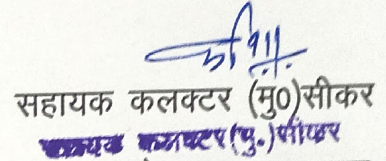 सहायक कलक्टर (मु0)सीकर
सहायक कलक्टर(मु.)सीकर